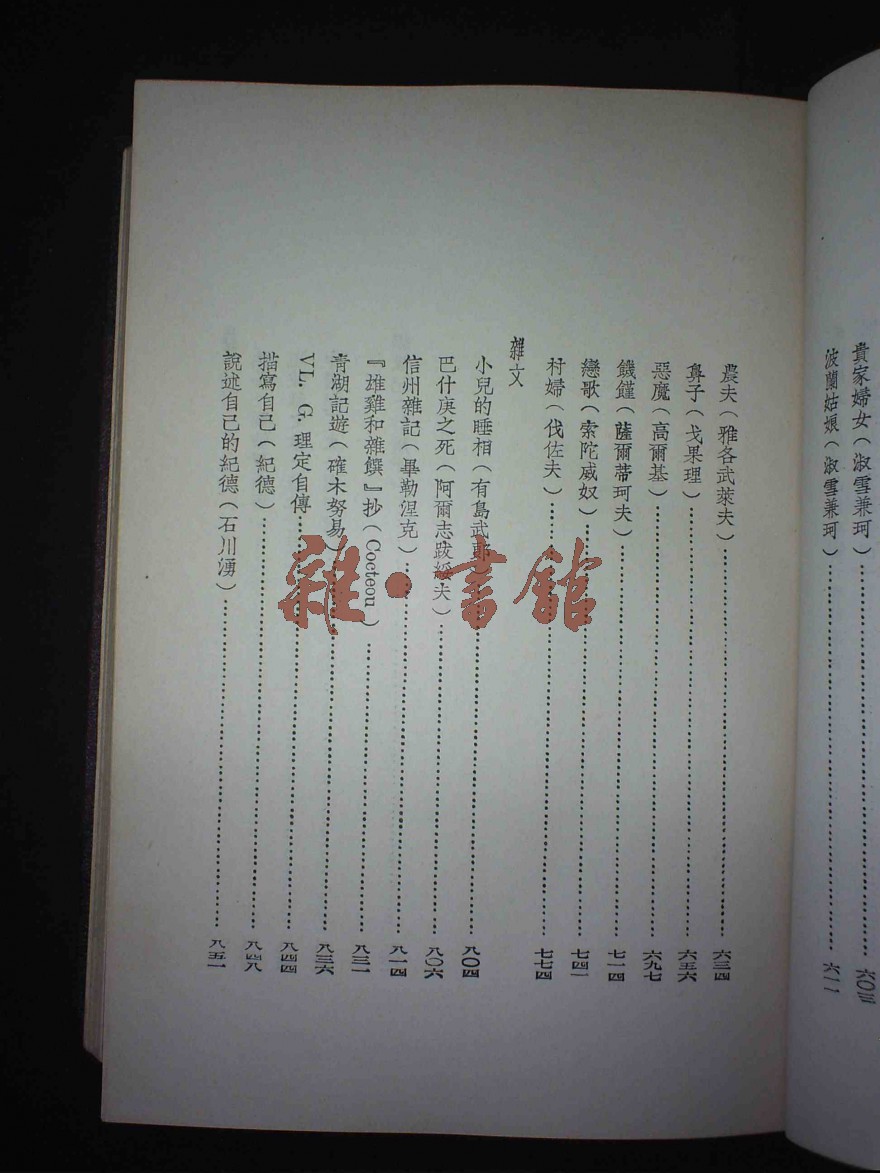 貴家婦女（淑雪兼珂）……六〇三
波蘭姑娘（淑雪兼珂）……六一一
農夫（雅各武萊夫）……六三四
鼻子（戈果理）……六五六
惡魔（高爾基）……六九七
饑饉（薩爾蒂珂夫）……七一四
戀歌（索陀威奴）……七四一
村婦（伐佐夫）……七七四
雜文
小兒的睡相（有島武郎）……八〇四
巴什庚之死（阿爾志跋綏夫）……八〇六
信州雜記（畢勒涅克）……八一四
『雄雞和雜饌』抄（Cocteou）……八三一
青湖記遊（確木努易）……八三六
VL. G. 理定自傳……八四四
描寫自己（紀德）……八四八
說述自己的紀德（石川湧）……八五一
雜·書館